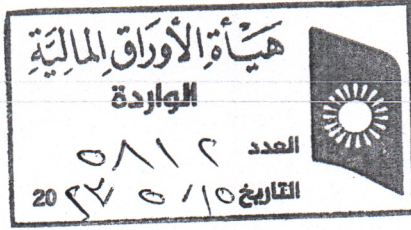 هَيْأَةِ الأَوْرَاقِ المَالِيَّةِ
الواردة
العدد ٥٨١٢
التاريخ ١٥/ ٥ / 20